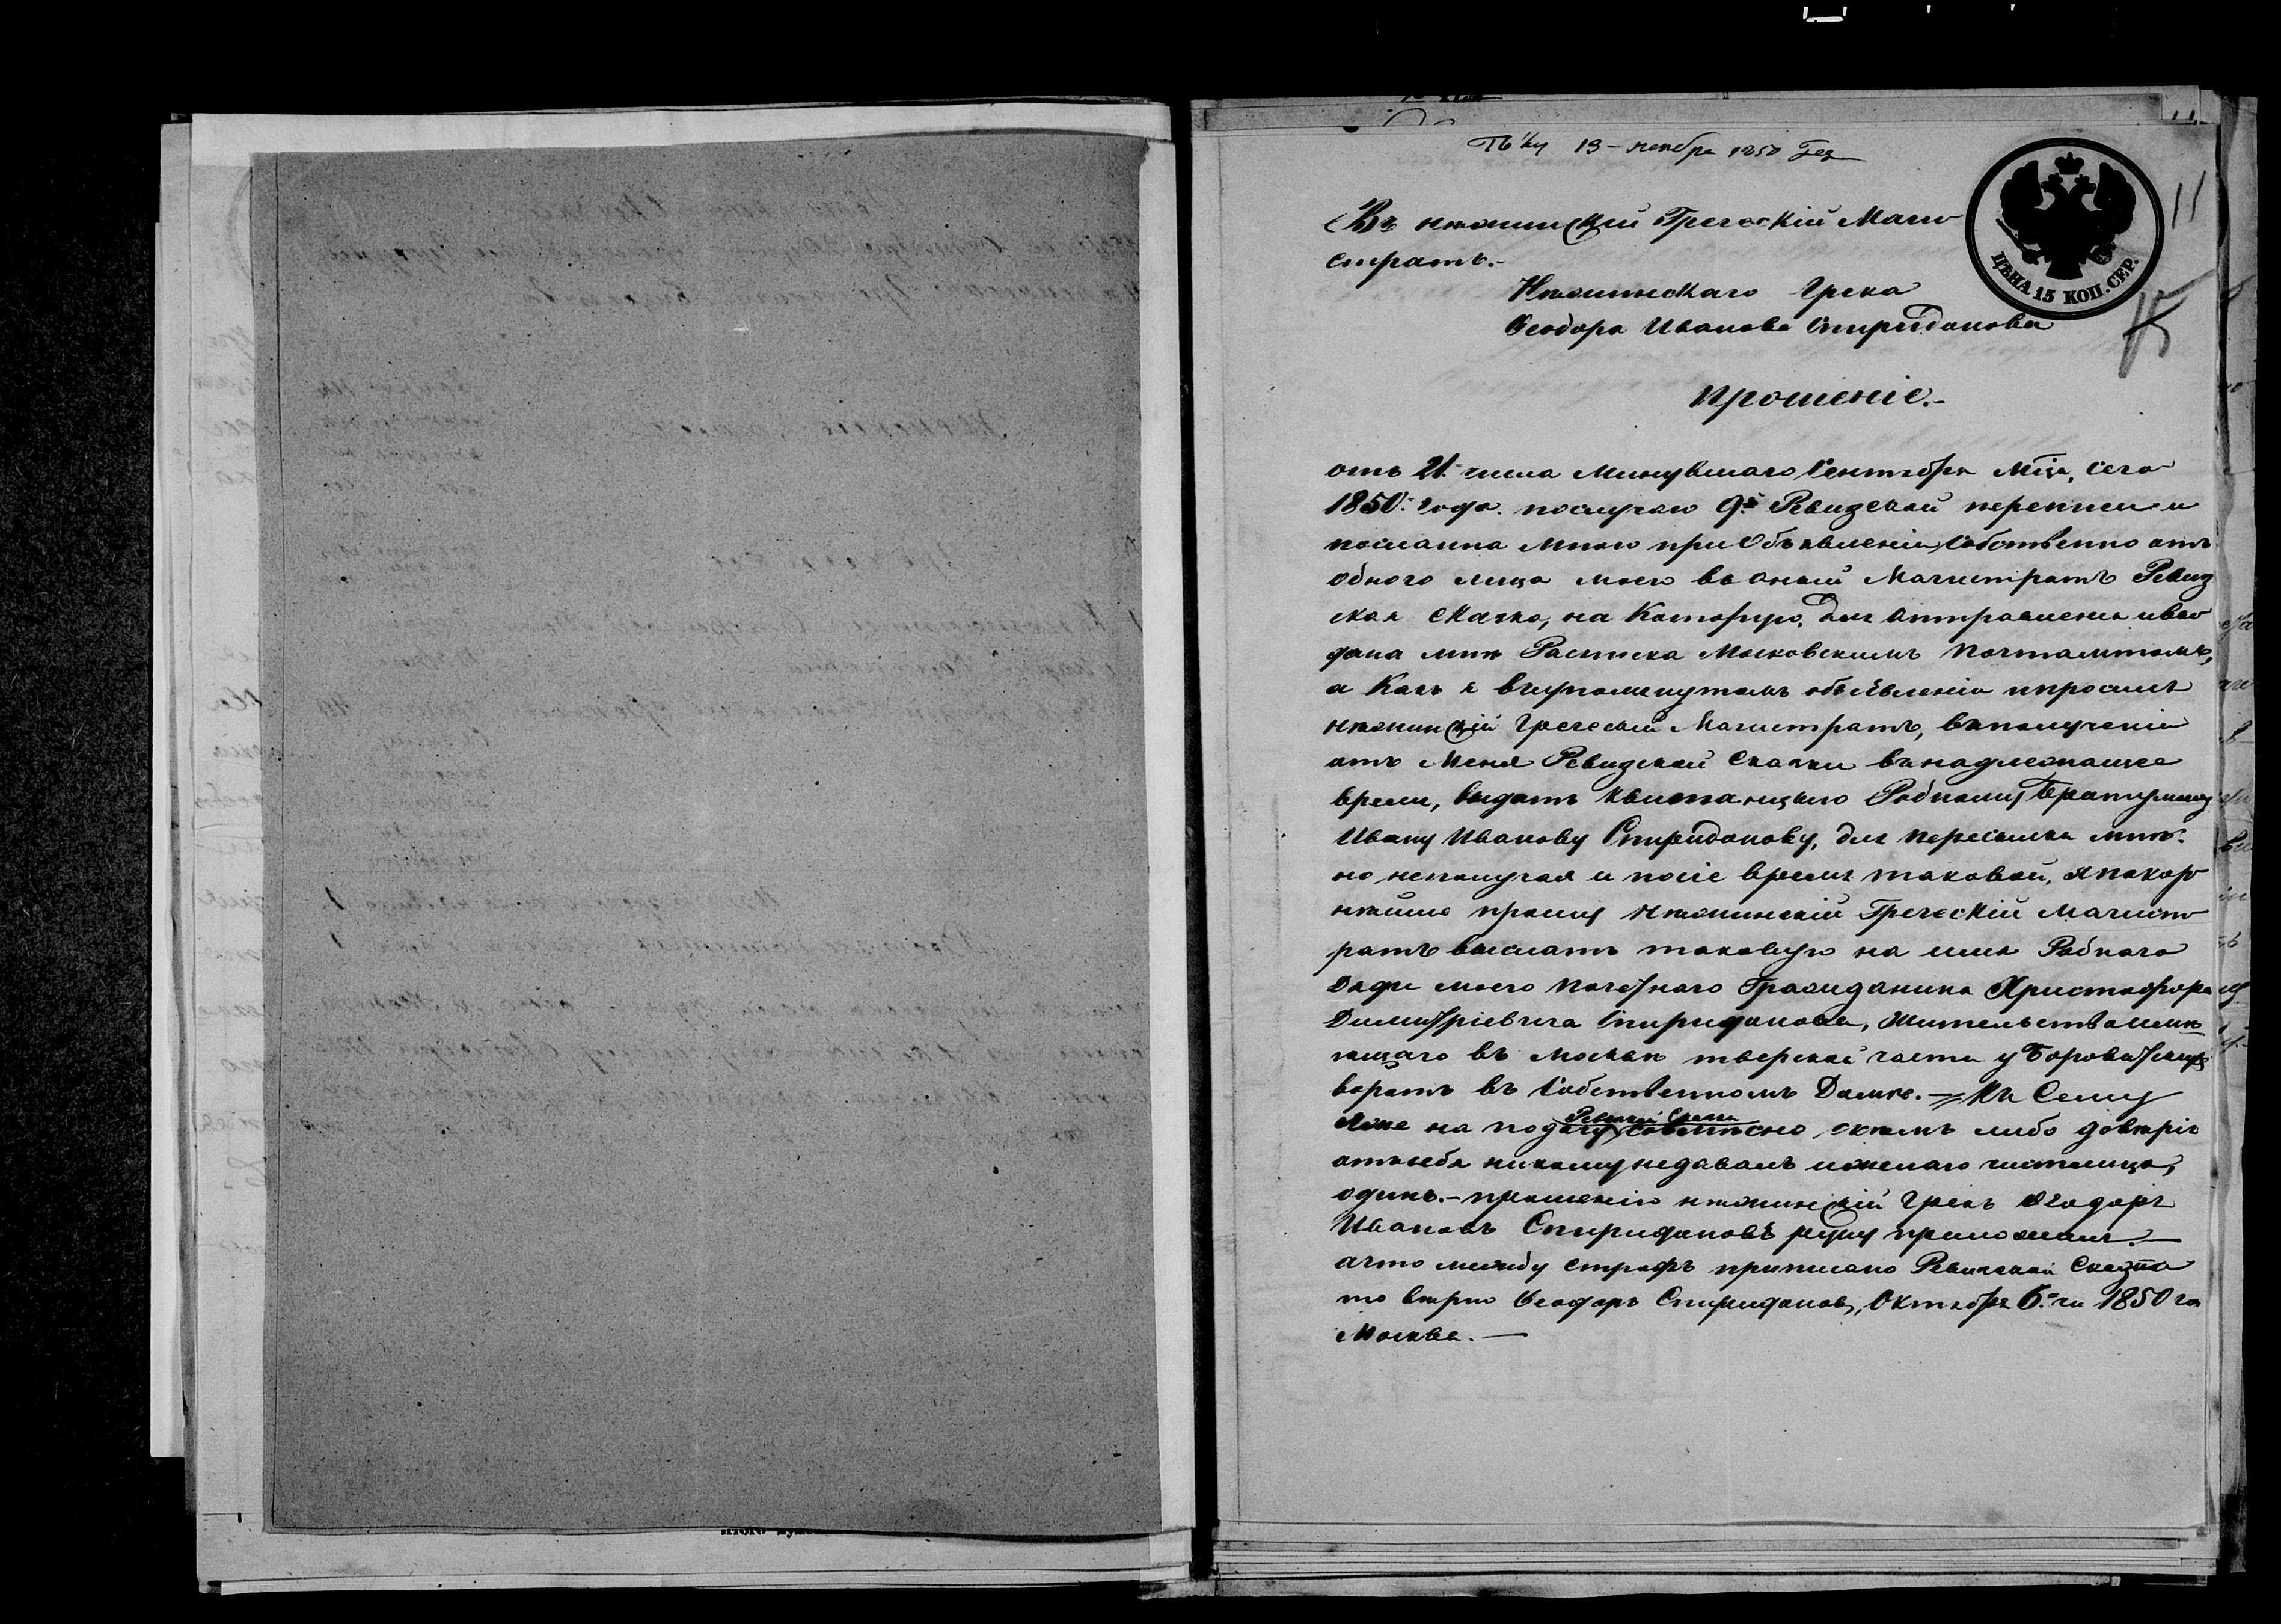 11
13 - ноября 1850 Года
ЦѢНА 15 КОП. СЕР.
11
15
Въ нѣжинскій Греческій Маги
стратъ.-
Нѣжинскаго Грека
Ѳеодора Иванова Спиридонова
Прошеніе.-
отъ 21. числа Минувшаго Сентября Мца, сего
1850. года. послучаю 9й Ревизской переписи
послана Мною при Объявленіи Собственно отъ
одного лица моего во оный Магистратъ Ревиз
ская Скаска, на Которую, для отправленія
дана мнѣ Расписка Московскимъ Почтамтомъ,
а Какъ я въ упомянутомъ объявленіи просилъ
нѣжинскій Греческій Магистратъ, въ полученіи
отъ Меня Ревизской Скаски въ надлежащее
время, выдать квитанцыю Родному Брату моему
Ивану Иванову Спиридонову, для пересылки мнѣ.
но неполучая и после время таковой, я покор
нѣйше прошу нѣжинскій Греческій Магист
ратъ выслать таковую на имя Роднаго
Дяди моего Почетнаго Гражданина Христофора
Димитріевича Спиридонова, Жительство имѣ
ющаго въ Москвѣ тверской части у Боровитскихъ
воротъ въ Собственномъ Домѣ. - Къ Сему
Ревизкой Скаски
на подачу совмѣсно, скѣмъ либо довѣріе
отъ себя никому недавалъ
одинъ. - прошенію нѣжинскій Грекъ Ѳеодоръ
Ивановъ Спиридоновъ руку приложилъ. -
ачто между строкъ приписано Ревизской Скаски
то вѣрно Ѳеодоръ Спиридоновъ, Октября 6. чи 1850 го
Москва. -